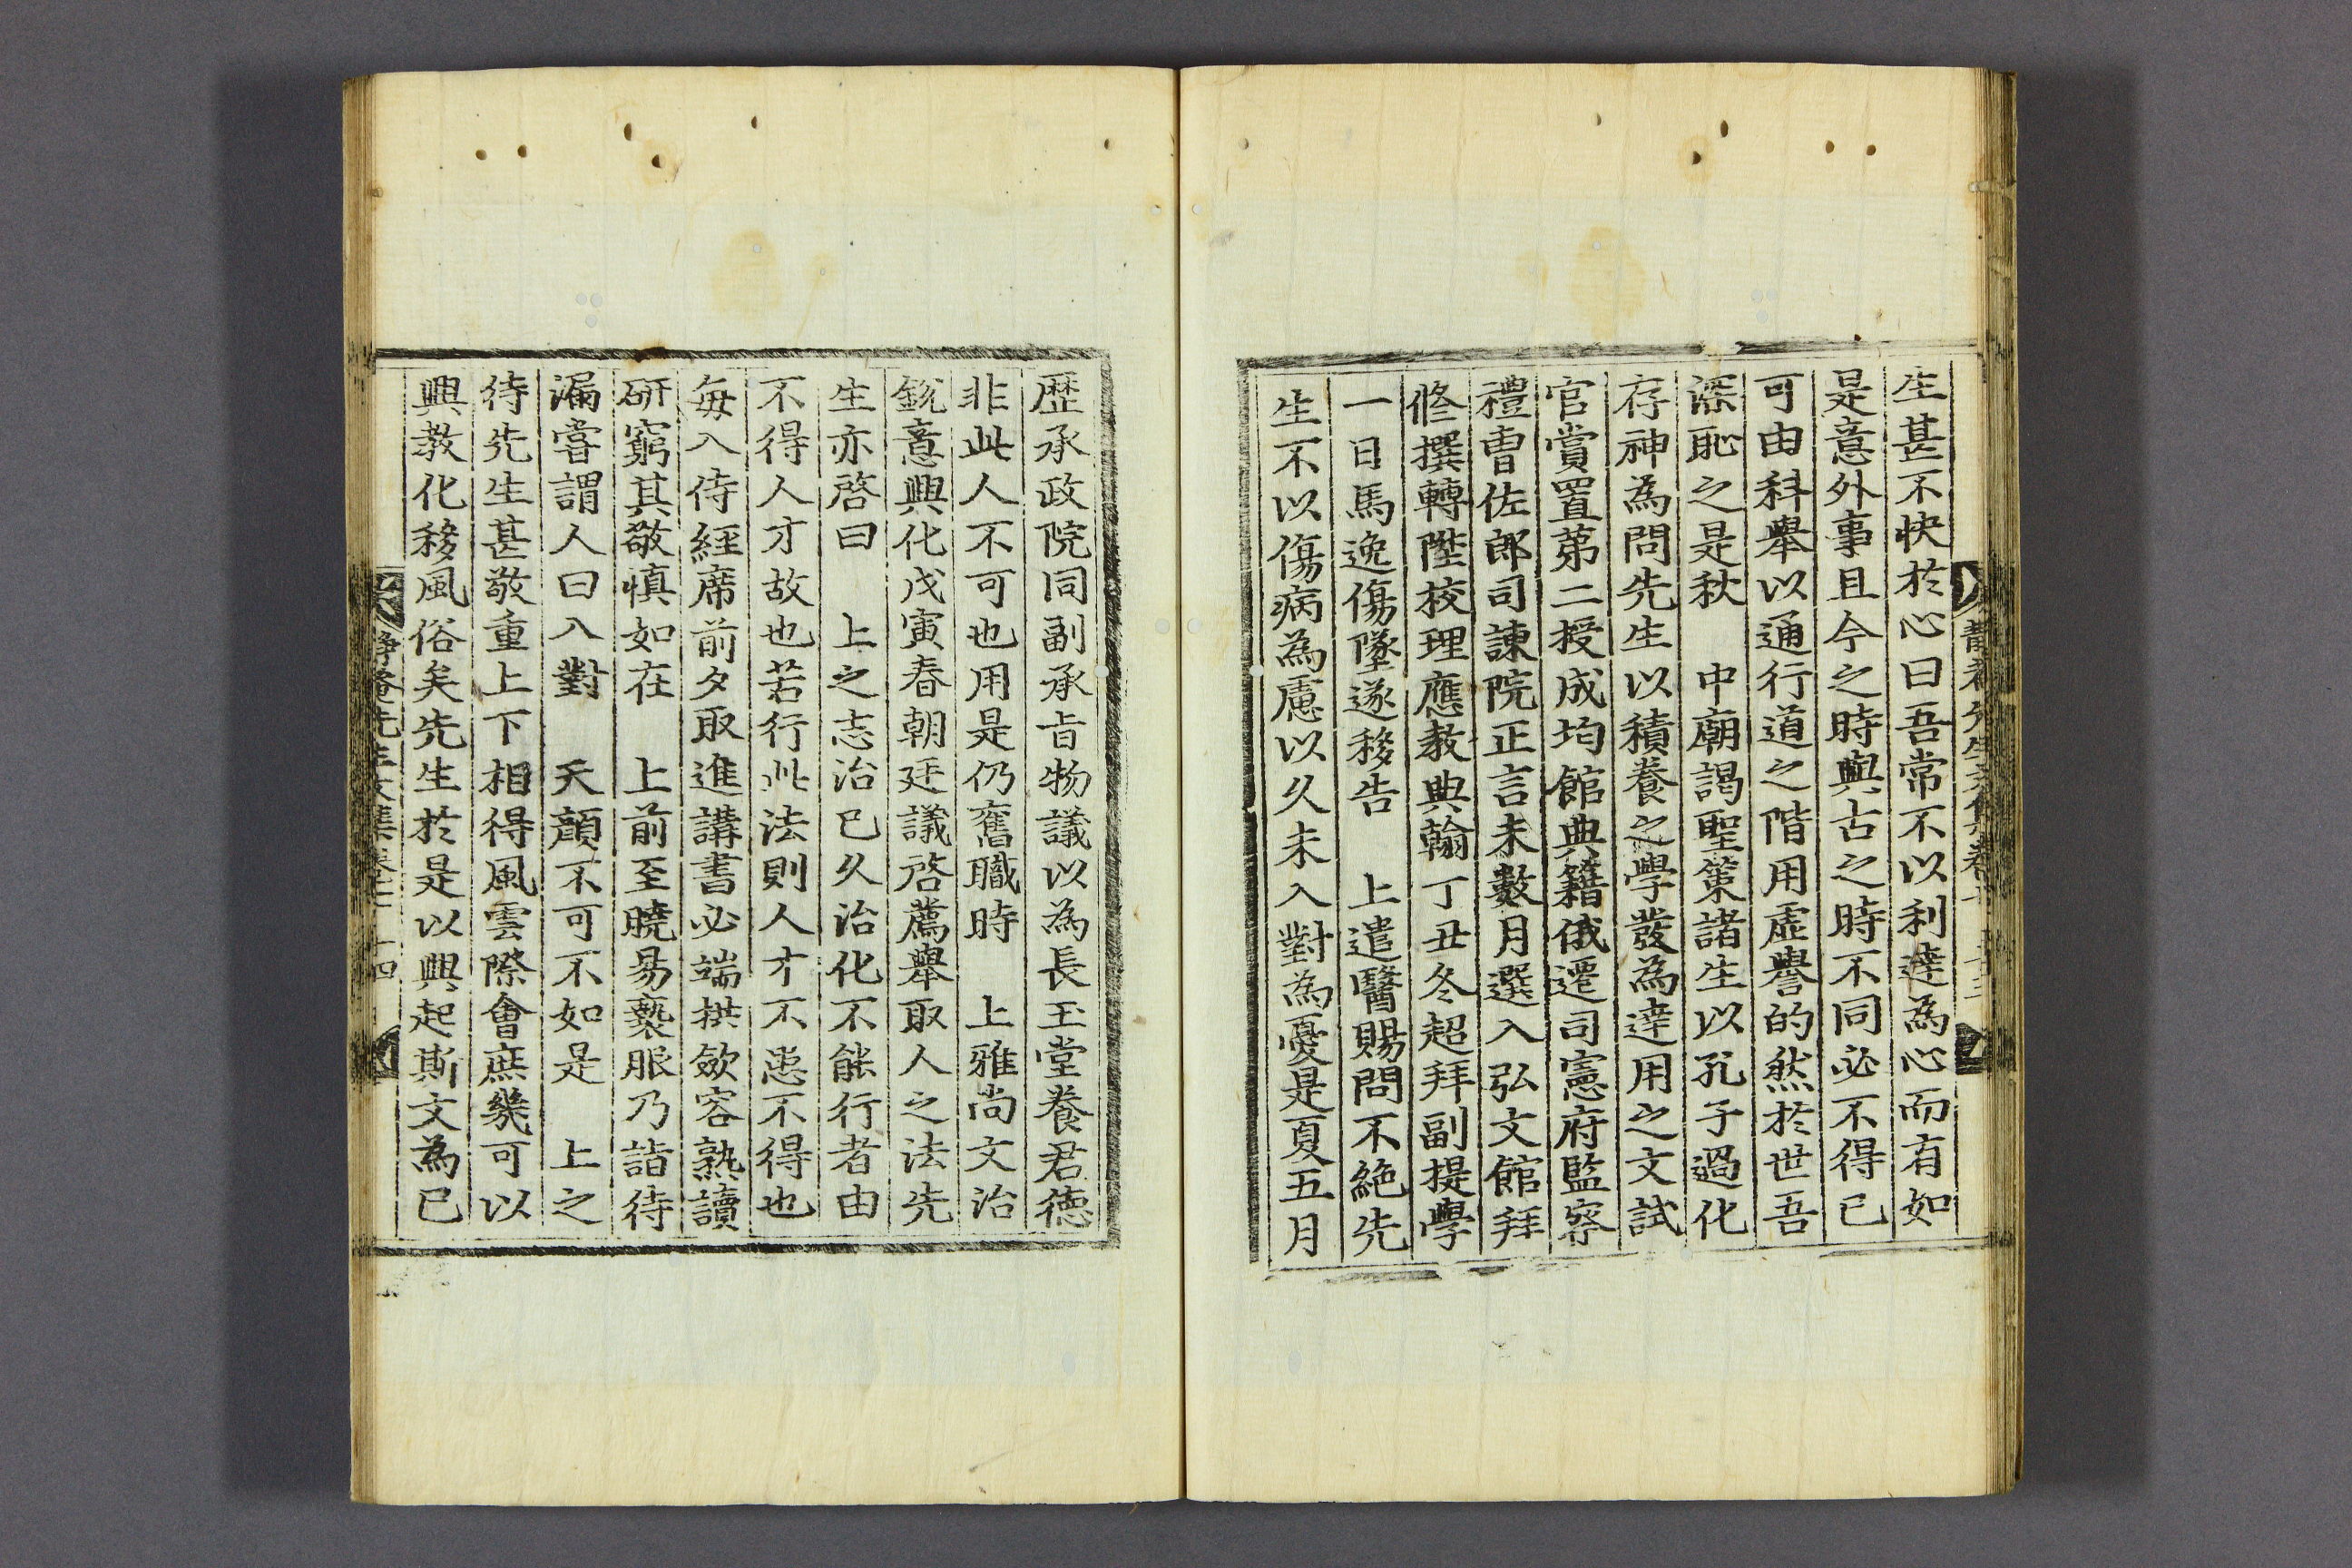 生甚不快於心曰吾常不以利達為心而有如
是意外事且今之時與古之時不同必不得已
可由科舉以通行道之階用虛譽的然於世吾
深恥之是秋 中廟謁聖策諸生以孔子過化
存神為問先生以積養之學發為達用之文試
官賞置第二授成均館典籍俄遷司憲府監察
禮曹佐郎司諫院正言未數月選入弘文館拜
修撰轉陞校理應教典翰丁丑冬超拜副提學
一日馬逸傷墜遂移告 上遣醫賜問不絕先
生不以傷病為慮以久未入對為憂是夏五月
歷承政院同副承旨物議以為長玉堂養君德
非此人不可也用是仍舊職時 上雅尚文治
銳意興化戊寅春朝廷議啓薦舉取人之法先
生亦啓曰 上之志治已久治化不能行者由
不得人才故也若行此法則人才不患不得也
每入侍經席前夕取進講書必端拱斂容熟讀
研窮其敬慎如在 上前至曉易褻服乃詣待
漏嘗謂人曰入對 天顏不可不如是 上之
待先生甚敬重上下相得風雲際會庶幾可以
興教化移風俗矣先生於是以興起斯文為已
靜菴先生文集卷 十四